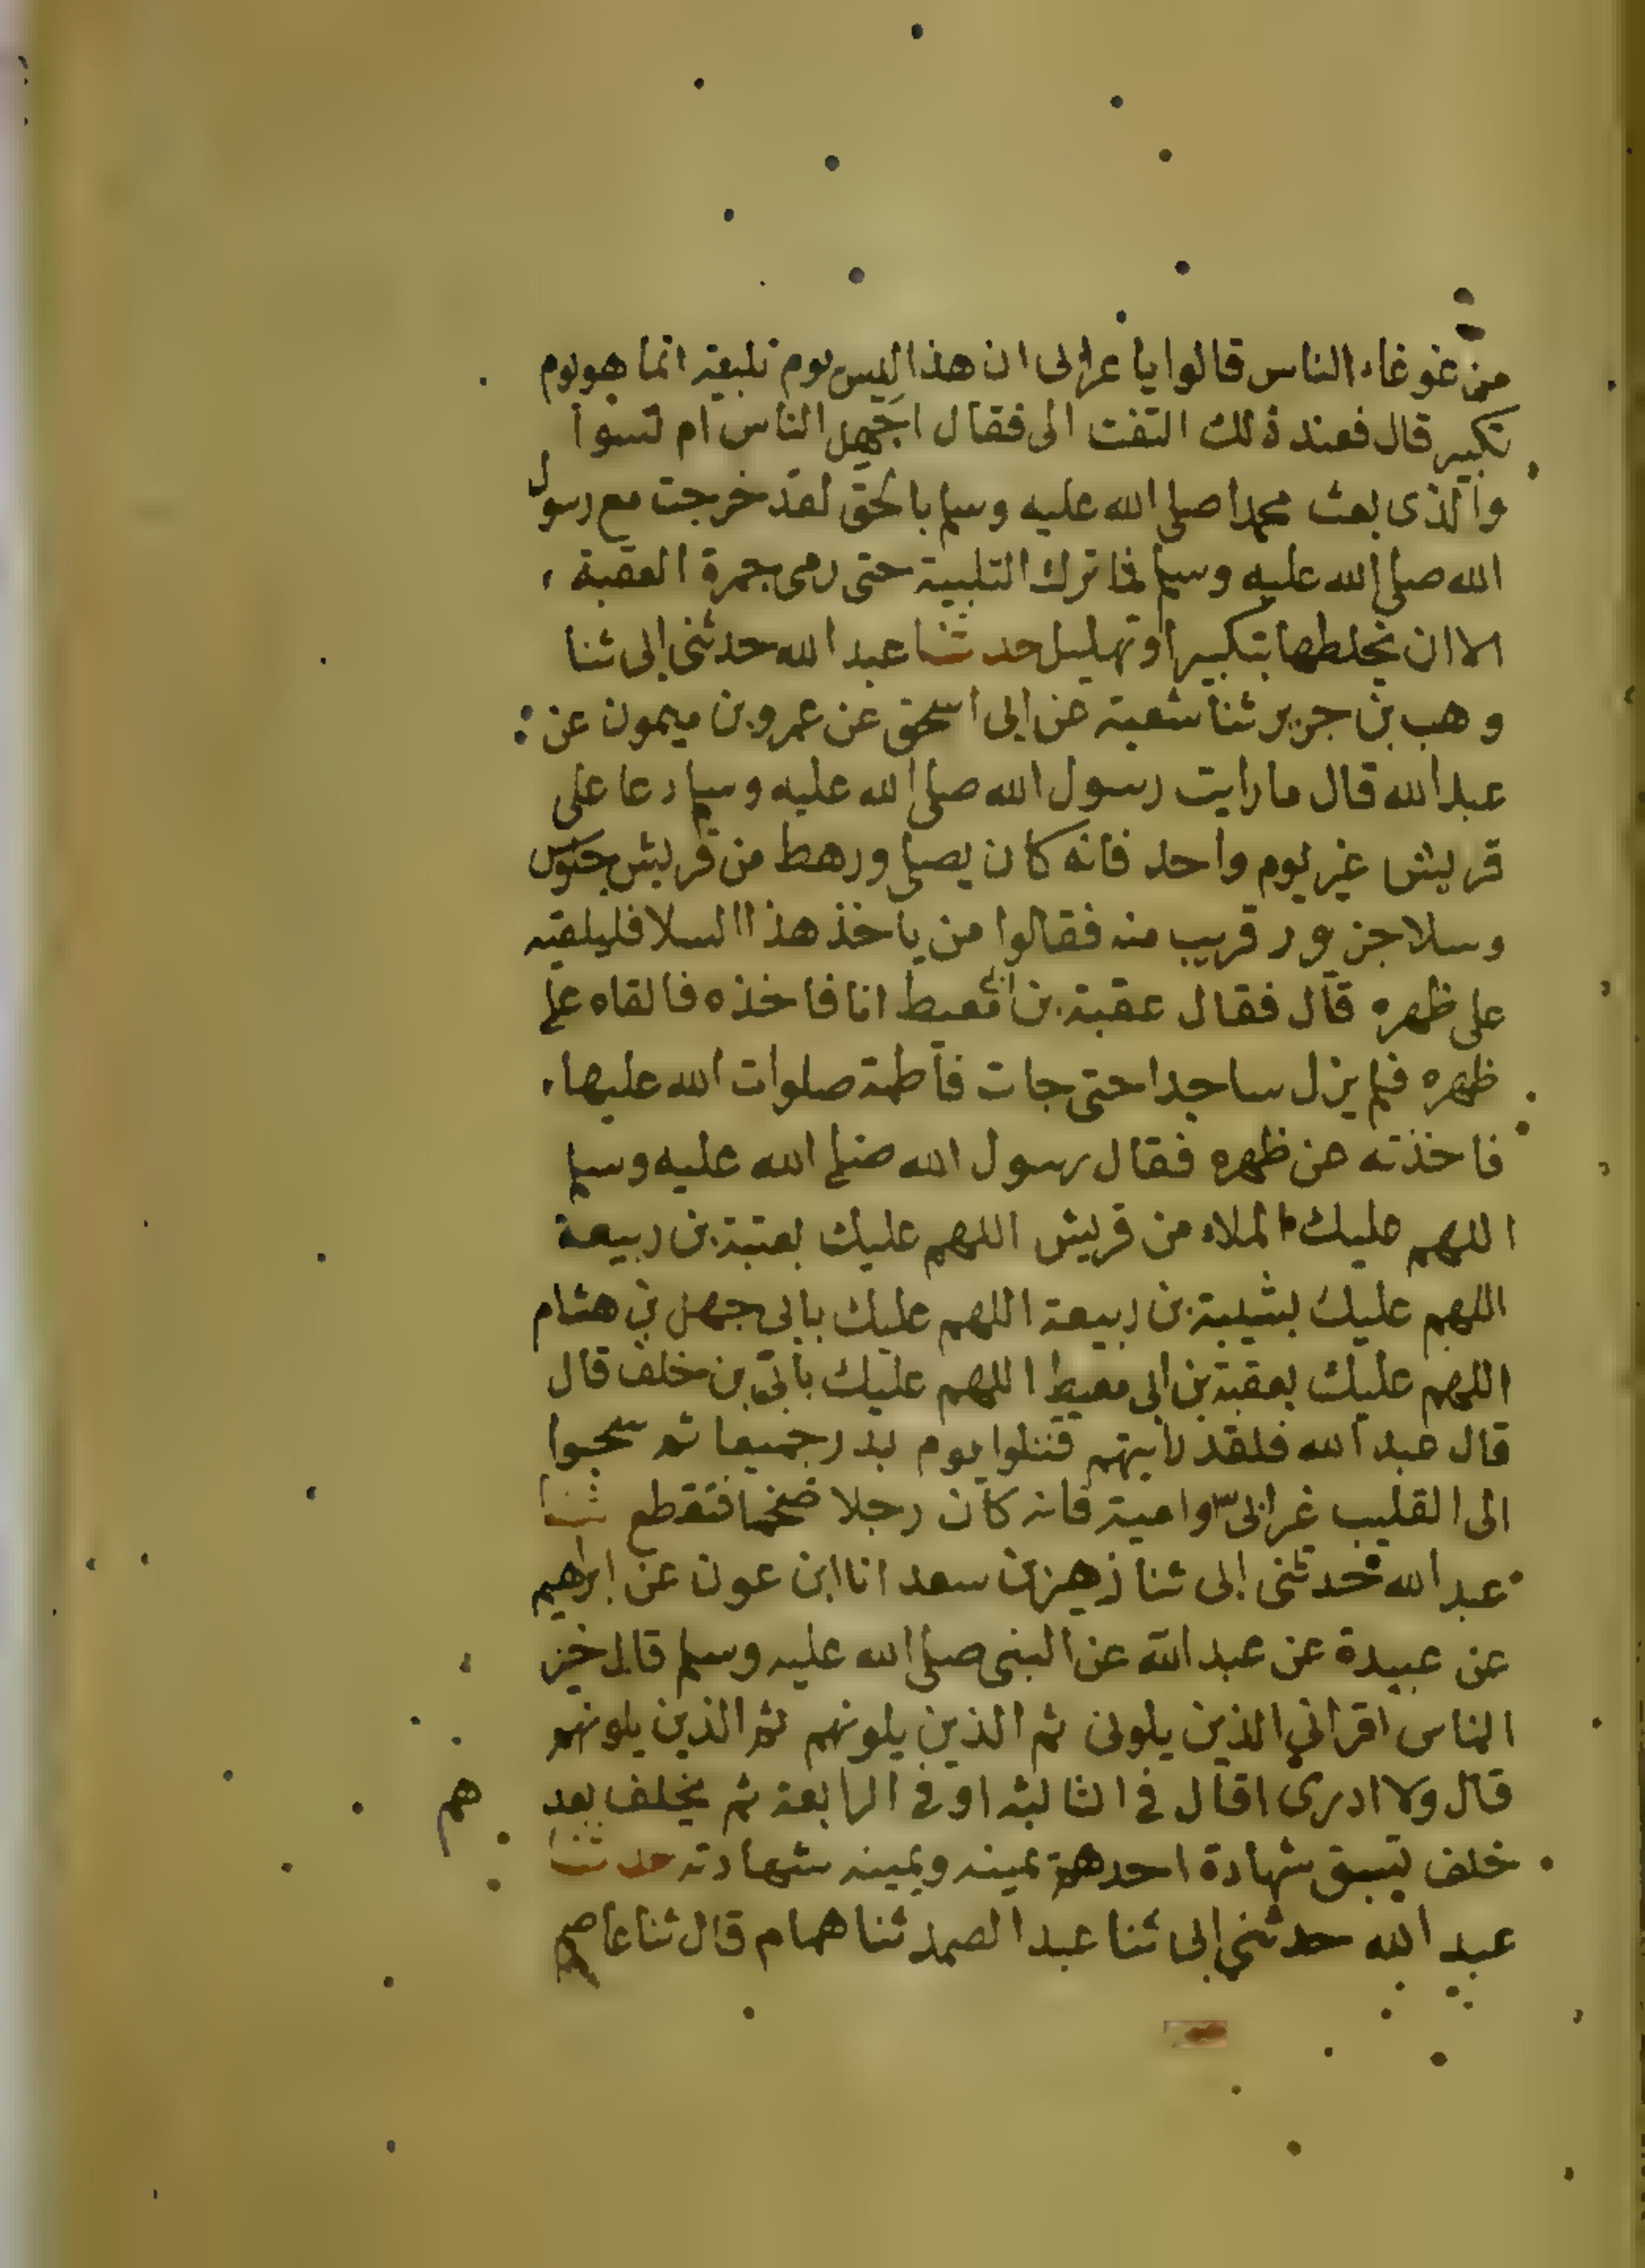 من غوغاء الناس قالوا يا عرابى ان هذا ليس يوم تلبية انما هو يوم
تكبير قال فعند ذلك التفت الى فقال اجهل الناس ام نسوا
والذى بعث محمدا صلى الله عليه وسلم بالحق لقد خرجت مع رسول
الله صلى الله عليه وسلم فما ترك التلبية حتى رمى جمرة العقبة
الا ان يخلطها بتكبير او تهليل حدثنا عبد الله حدثنى ابى ثنا
وهب بن جرير ثنا شعبة عن ابى اسحق عن عمرو بن ميمون عن
عبد الله قال ما رايت رسول الله صلى الله عليه وسلم دعا على
قريش غير يوم واحد فانه كان يصلى ورهط من قريش جلوس
وسلا جزور قريب منه فقالوا من ياخذ هذا السلا فليلقيه
على ظهره قال فقال عقبة بن ابى معيط انا فاخذه فالقاه على
ظهره فلم يزل ساجدا حتى جات فاطمة صلوات الله عليها
فاخذته عن ظهره فقال رسول الله صلى الله عليه وسلم
اللهم عليك الملاء من قريش اللهم عليك بعتبة بن ربيعة
اللهم عليك بشيبة بن ربيعة اللهم عليك بابى جهل بن هشام
اللهم عليك بعقبة بن ابى معيط اللهم عليك بابى بن خلف قال
قال عبد الله فلقد رايتهم قتلوا يوم بدر جميعا ثم سحبوا
الى القليب غير ابى او امية فانه كان رجلا ضخما فتقطع ثنا
عبد الله حدثنى ابى ثنا ازهر بن سعد انا ابن عون عن ابراهيم
عن عبيدة عن عبد الله عن النبى صلى الله عليه وسلم قال خير
الناس اقرانى الذين يلونى ثم الذين يلونهم ثم الذين يلونهم
قال ولا ادرى اقال فى الثالثه او فى الرابعة ثم يخلف بعدهم
خلف تسبق شهادة احدهم يمينه ويمينه شهادته حدثنا
عبد الله حدثنى ابى ثنا عبد الصمد ثنا همام قال ثنا عاصم